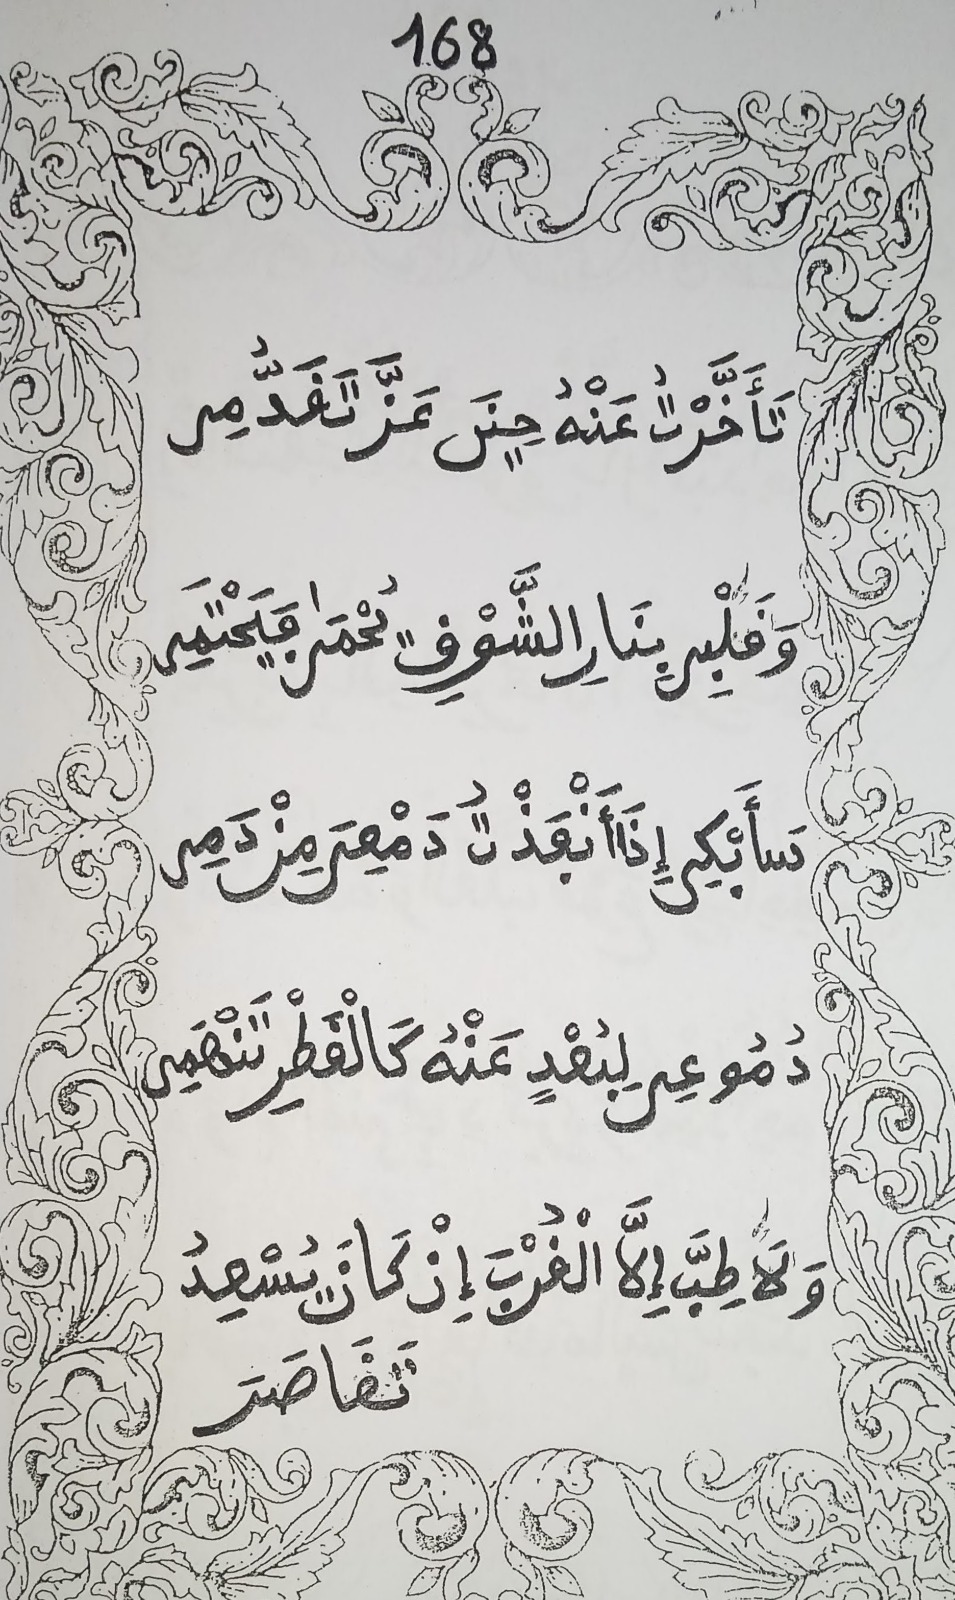 168
تَأَخَّرْتُ عَنْهُ حِينَ عَزَّ تَقَدُّمِي
وَقَلْبِي بِنَارِ الشَّوْقِ يُحْمَى فَيَحْتَمِي
سَأَبْكِي إِذَا أَنْفَذْتُ دَمْعِيَ مِنْ دَمِي
دُمُوعِي لِبُعْدٍ عَنْهُ كَالْقَطْرِ تَنْهَمِي
وَلَا طِبَّ إِلَّا الْقُرْبَ إِنْ كَانَ يُسْعِدُ
تَقَاصَرَ